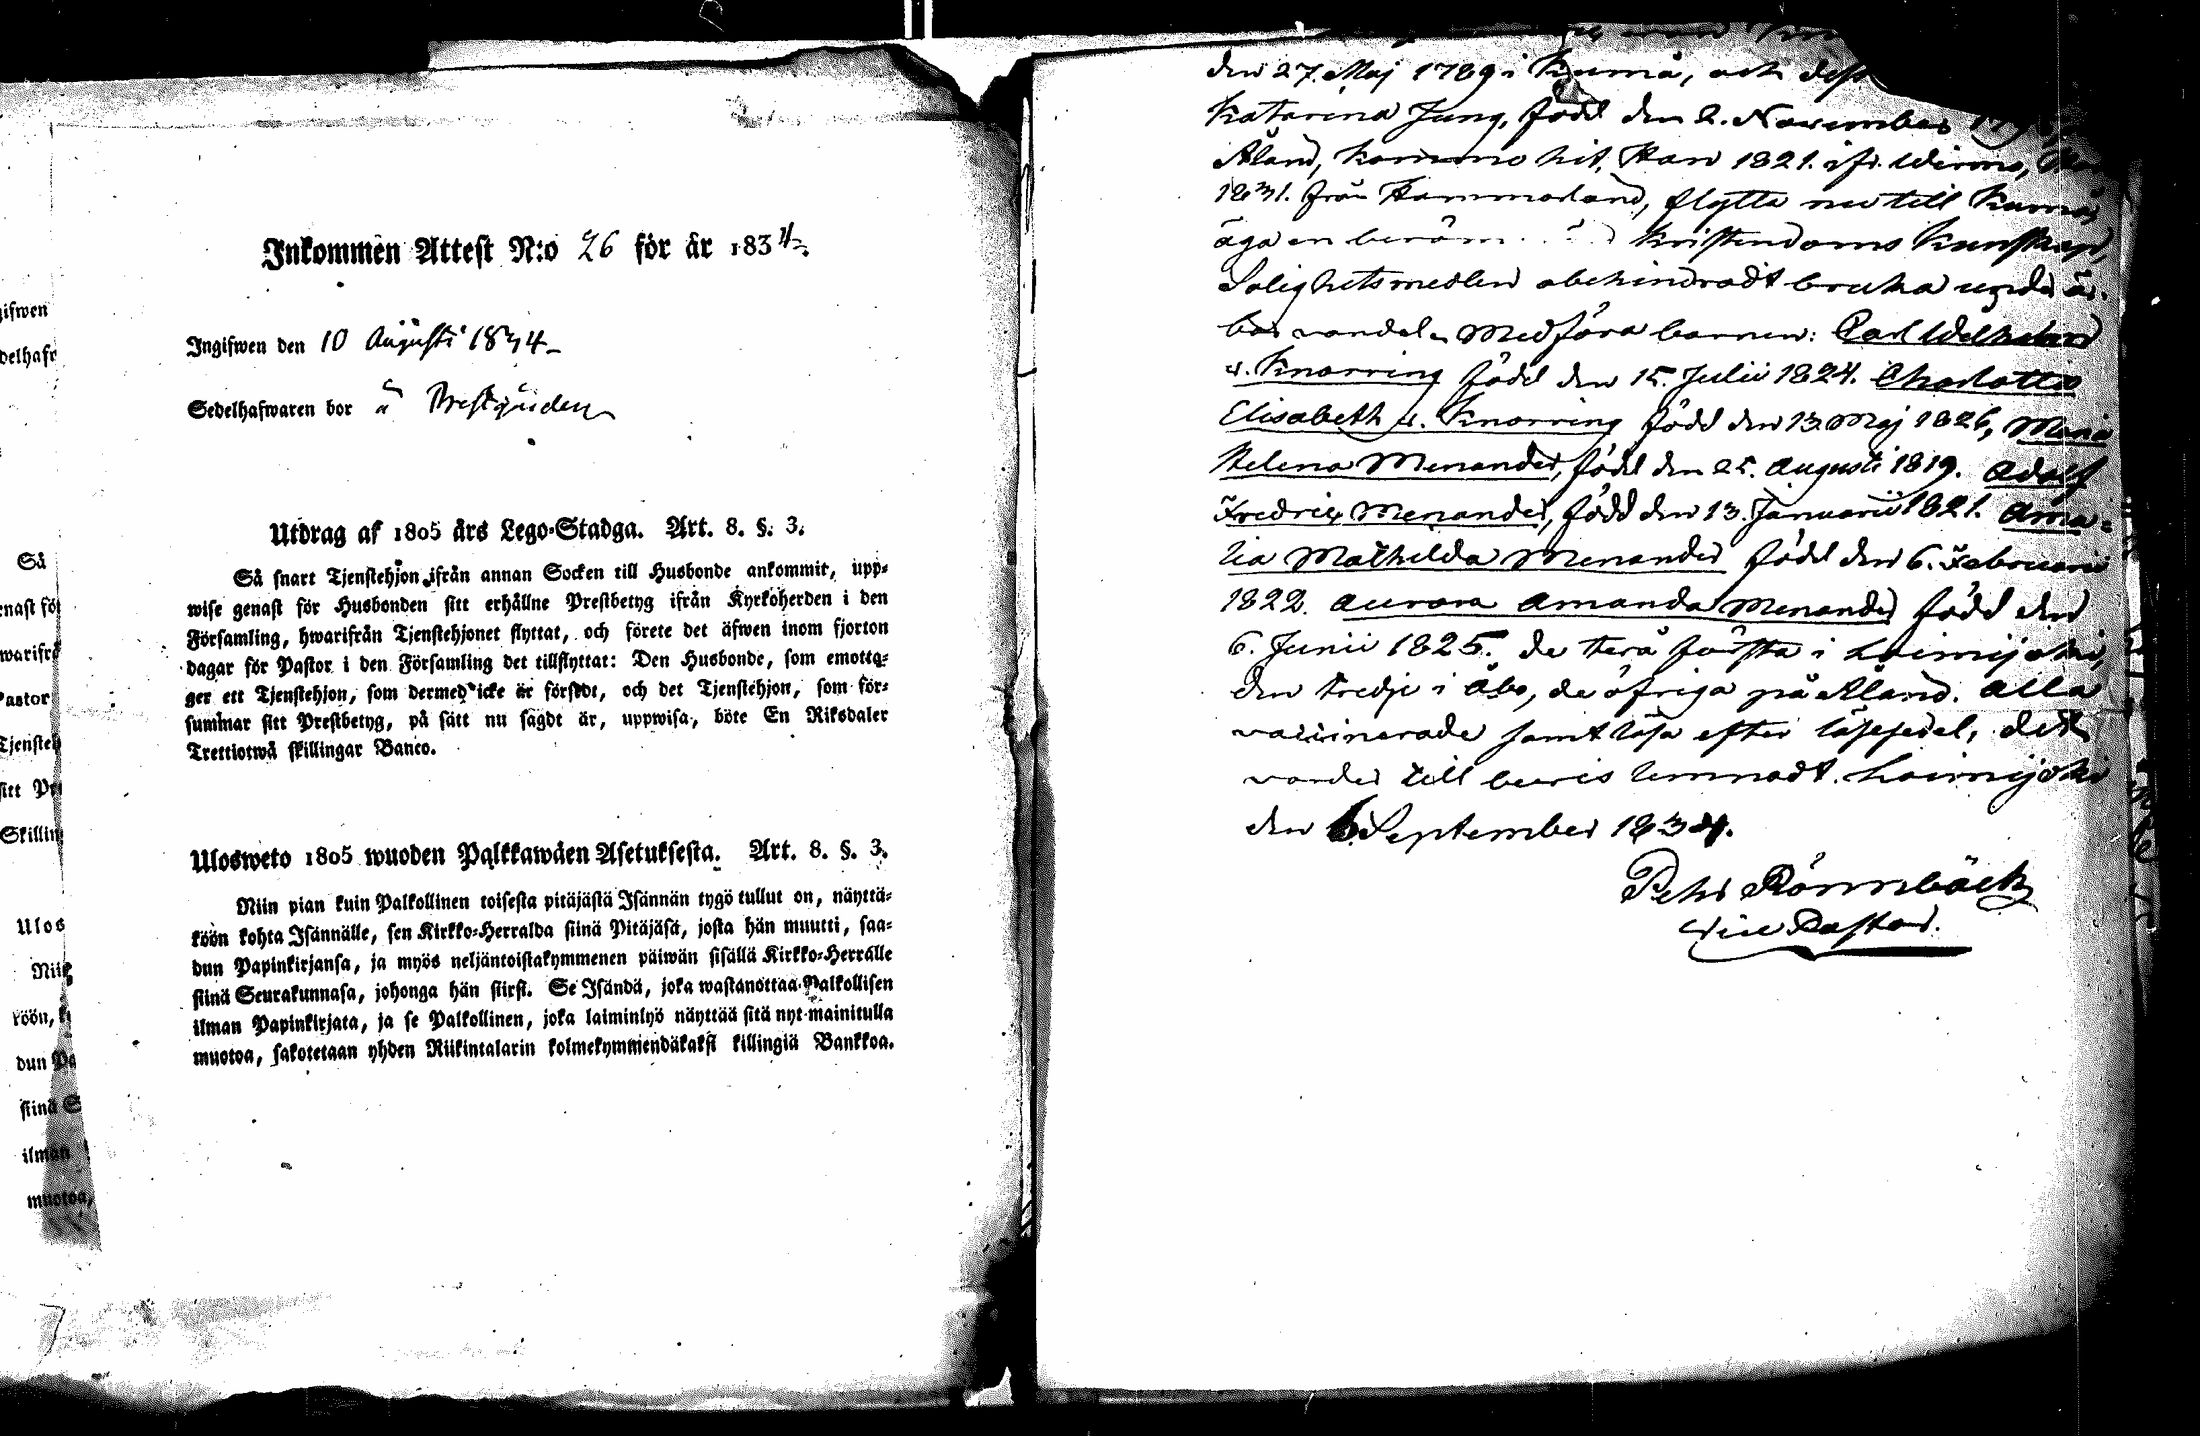 Inkommen Attest N:o 26 för år 1834.
Ingifwen den 10 Augusti 1834
Sedelhafwaren bor å Prestgården
Utdrag af 1805 års Lego-Stadga. Art. 8. §. 3.
Så snart Tjenstehjon ifrån annan Socken till Husbonde ankommit, upp-
wise genast för Husbonden sitt erhållne Prestbetyg ifrån Kyrkoherden i den
Församling, hwarifrån Tjenstehjonet flyttat, och förete det äfwen inom fjorton
dagar för Pastor i den Församling det tillflyttat: Den Husbonde, som emotta-
ger ett Tjenstehjon, som dermed icke är försedt, och det Tjenstehjon, som för-
summar sitt Prestbetyg, på sätt nu sagdt är, uppwisa, böte En Riksdaler
Trettiotwå skillingar Banco.
Ulosweto 1805 wuoden Palkkawäen Asetuksesta. Art. 8. §. 3.
Niin pian kuin Palkollinen toisesta pitäjästä Isännän tygö tullut on, näyttä-
köön kohta Isännälle, sen Kirkko-Herralda siinä Pitäjäsä, josta hän muutti, saa-
dun Papinkirjansa, ja myös neljäntoistakymmenen päiwän sisällä Kirkko-Herralle
siinä Seurakunnasa, johonga hän siirsi. Se Isändä, joka wastanottaa Palkollisen
ilman Papinkirjata, ja se Palkollinen, joka laiminlyö näyttää sitä nyt mainitulla
muotoa, sakotetaan yhden Riikintalarin kolmekymmendäkaksi killingiä Bankkoa.
gifwen
delhafr
Så
enast för
warifrå
Pastor
Tjensteh
sitt Pr
Skillin
Ulos
Niin
köön, k
dun Pa
siinä S
ilman
muotoa,
den 27. Maj 1789 i Kumå, och dess
Katarina Jung, född den 2. November
Åland, komme hit, Han 1821. ifr. Wirmo,
1831. från Hammarland, flytta nu till Kumå,
äga en beröm kristendoms kunskap,
Salighetsmedlen obehindradt bruka under är-
bar vandel. Medföra barnen: Carl Wilhelm
v. Knorring född den 15. Julii 1824. Charlotta
Elisabeth v. Knorring född den 13 Maj 1826, Maria
Helena Menander, född den 25. Augusti 1819. Adolf
Fredric Menander, född den 13. Januarii 1821. Ama-
lia Mathilda Menander född den 6. Februarii
1822. Aurora Amanda Menander född den
6. Junii 1825. de två första i Loimijoki,
den tredje i Åbo, de öfriga på Åland. Alla
vaccinerade samt läsa efter läsesedel, det
varder till bevis lemnadt. Loimijoki
den 6 September 1834.
Pehr Rönnbäck
Vice Pastor.